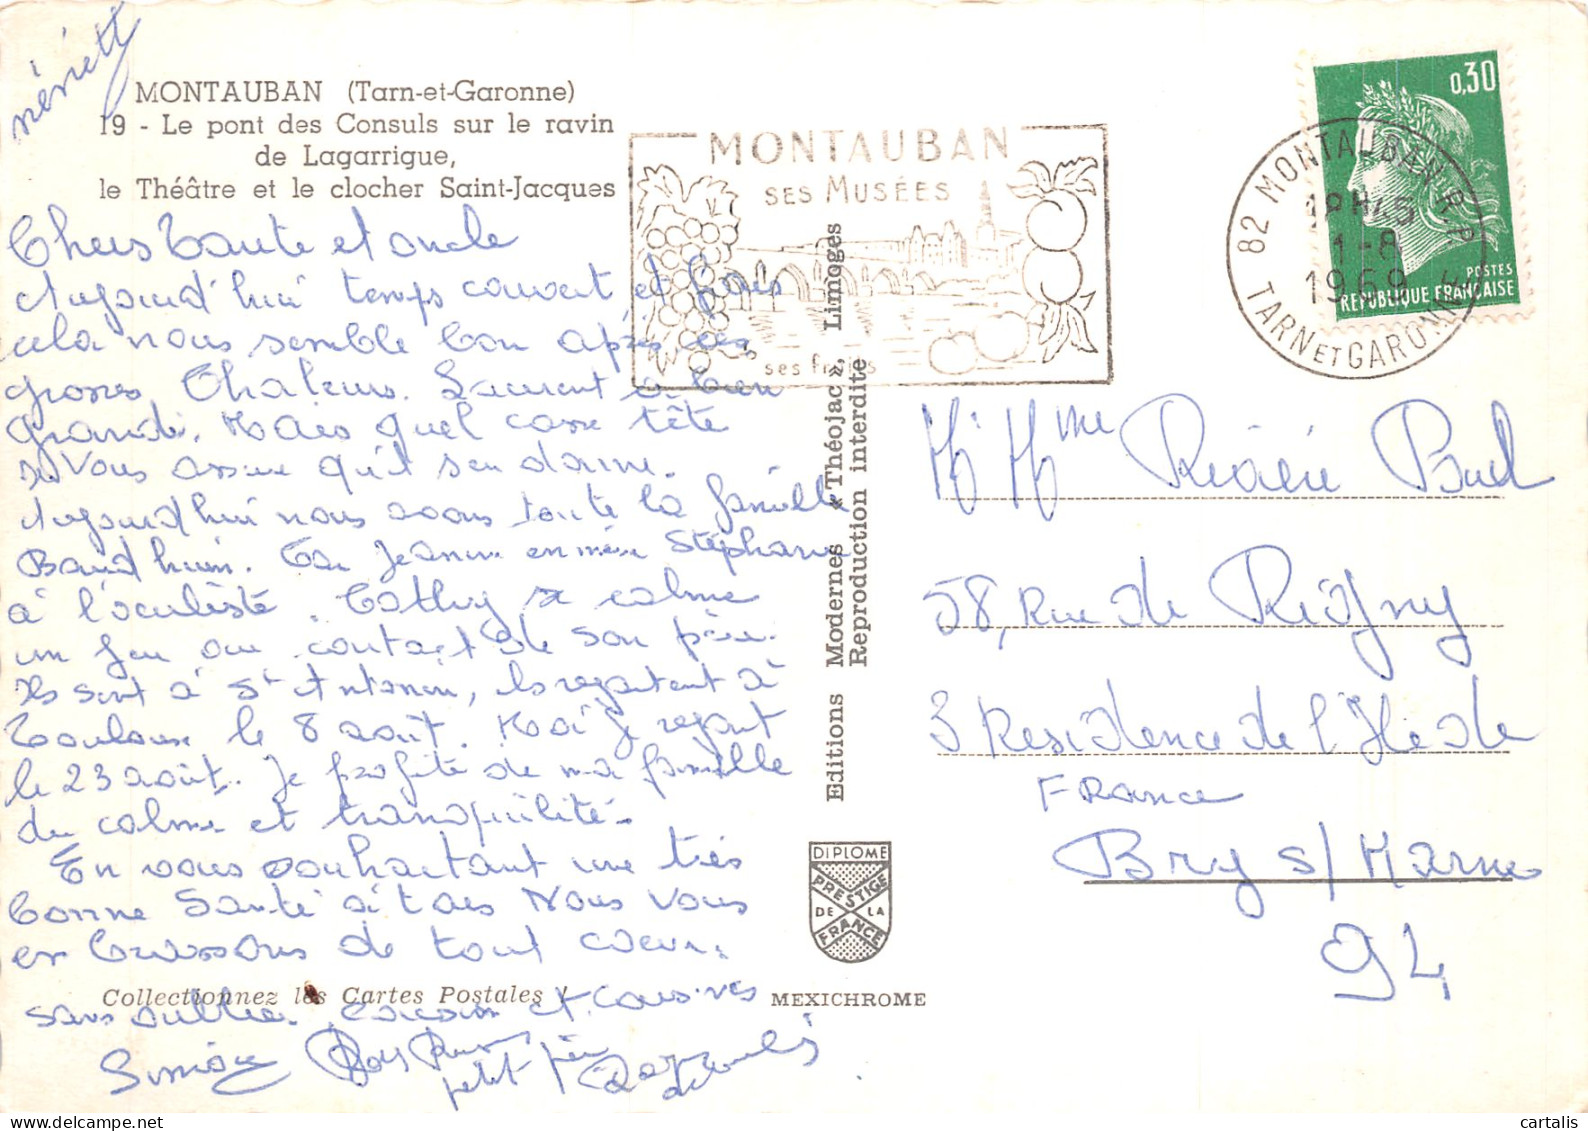 MONTAUBAN (Tarn-et-Garonne)
19 - Le pont des Consuls sur le ravin
de Lagarrigue,
le Théâtre et le clocher Saint-Jacques
Chers Tante et oncle
Aujourd'hui temps couvert et frais
cela nous semble bon après ces
grosses Chaleurs. Laurent a bien
grandi. Mais quel casse tête
je vous assure qu'il s'en donne.
Aujourd'hui nous avons toute la famille
Baudhuin. Car Jeanine emmène Stéphane
à l'oculiste. Cathy se calme
un peu au contact de son père.
Ils sont à St Antonin, ils repartent à
Toulouse le 8 août. Moi je repart
le 23 août. Je profite de ma famille
du calme et tranquilité.
En vous souhaitant une très
bonne Santé à tous Nous vous
embrassons de tout coeur.
sans oublier cousin et cousines
Simone
petit
Collectionnez les Cartes Postales !
MONTAUBAN
SES MUSÉES
ses fruits
Editions Modernes « Théojac », Limoges
Reproduction interdite
DIPLOME
PRESTIGE
DE LA
FRANCE
MEXICHROME
0,30
POSTES
REPUBLIQUE FRANÇAISE
82 MONTAUBAN R.P.
TARN ET GARONNE
1-8
1969
M Mme Rivière Paul
58, Rue de Rigny
3 Residence de l'Ile de
France
Bry s/ Marne
94
cartalis